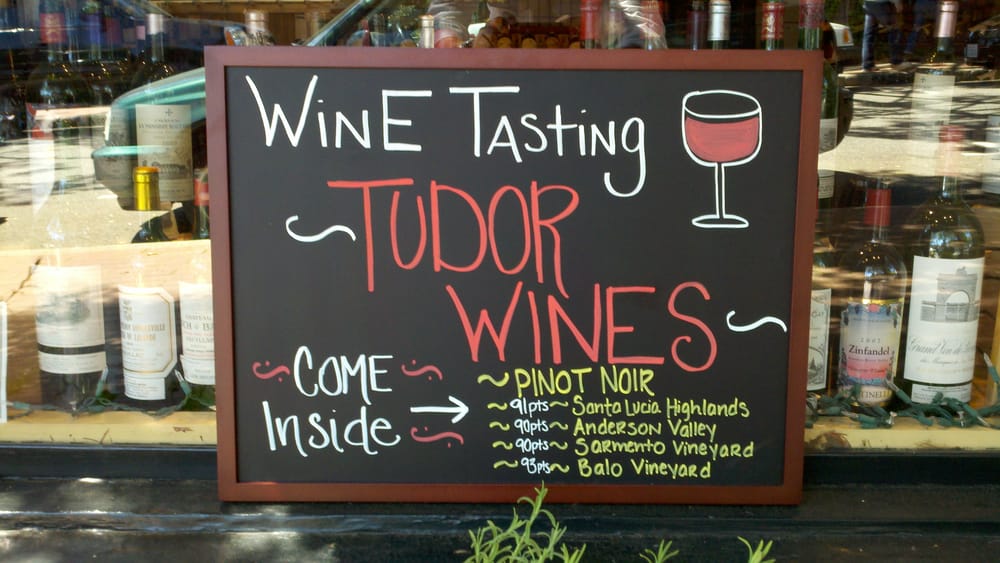 Wine Tasting
~ TUDOR
WINES ~
~ COME ~
Inside →
~ PINOT NOIR
~ 91pts ~ Santa Lucia Highlands
~ 90pts ~ Anderson Valley
~ 90pts ~ Sarmento Vineyard
~ 93pts ~ Balo Vineyard
Zinfandel